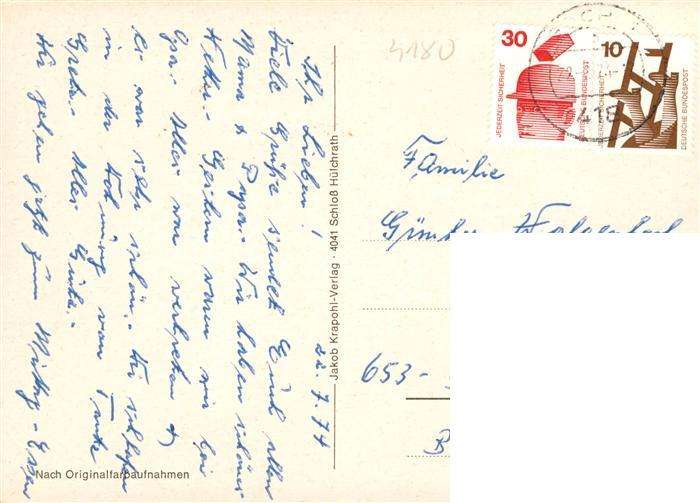 22.7.74
Ihr Lieben!
Viele Grüße sendet Euch allen
Mama & Papa. Wir haben schönes
Wetter. Gestern waren wir bei
Opa. Alles war vertreten &
Es war sehr schön. Wir schlafen
in der Wohnung von Tante
Greta. Alles Gute.
Wir gehen jetzt zum Mittag-Essen
Nach Originalfarbaufnahmen
Jakob Krapohl-Verlag · 4041 Schloß Hülchrath
4180
30
JEDERZEIT SICHERHEIT
DEUTSCHE BUNDESPOST
10
JEDERZEIT SICHERHEIT
DEUTSCHE BUNDESPOST
418
Familie
Günther
653-
B